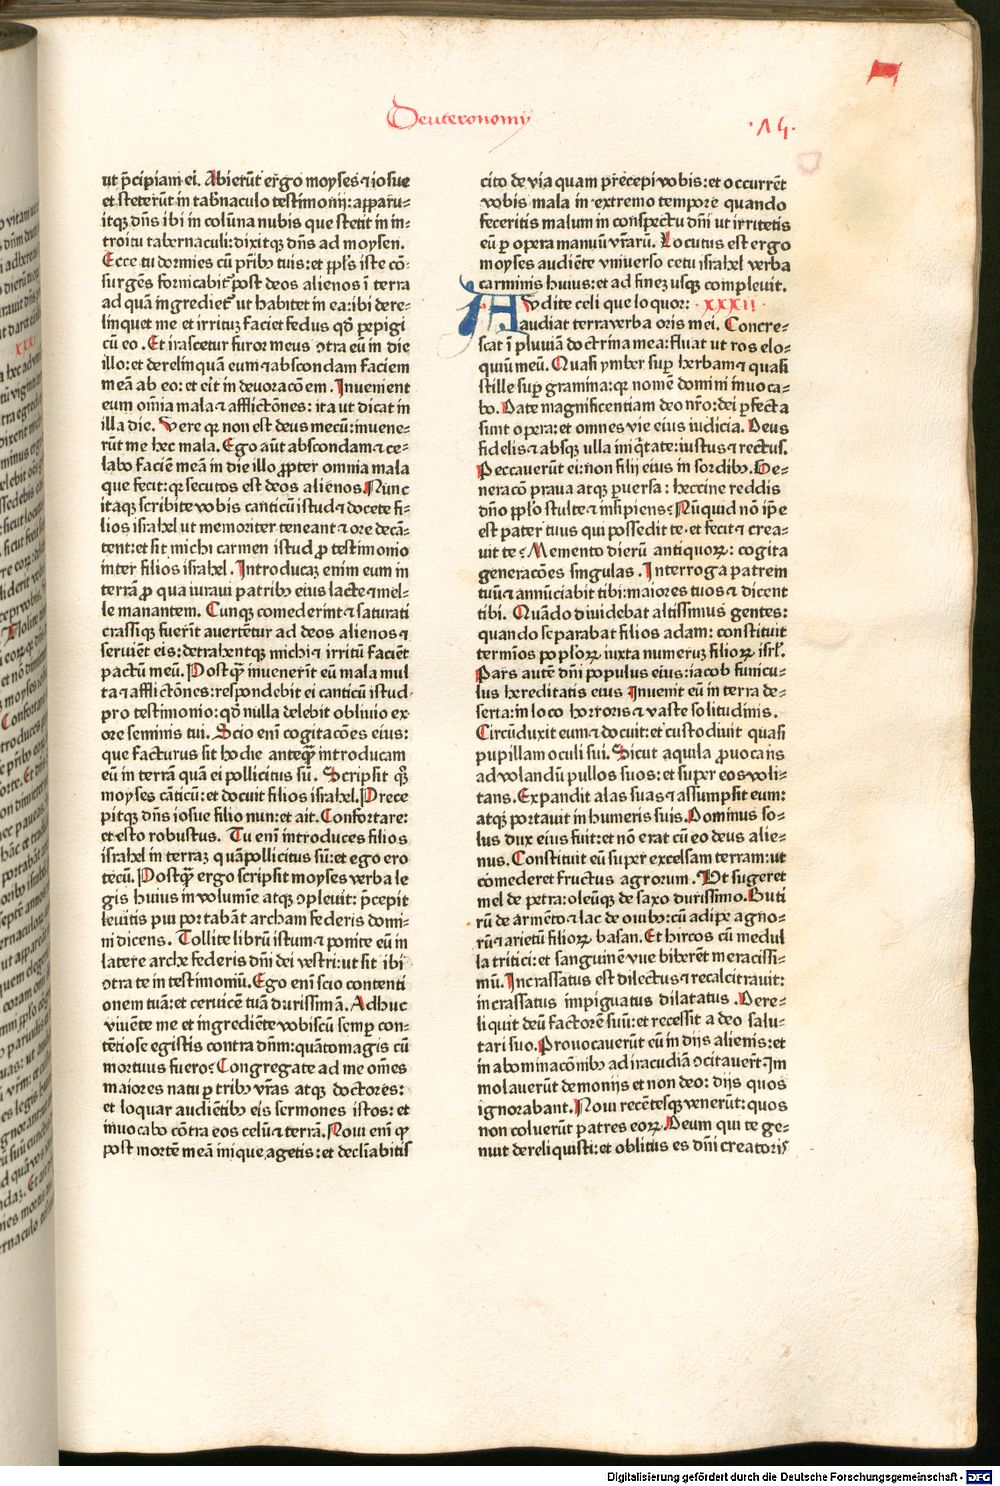 Deuteronomij
·14·
ut p̄cipiam ei. Abierūt ergo moyses ⁊ iosue
et steterūt in tab̄naculo testimonij: apparu-
itqꝫ dn̄s ibi in colūna nubis que stetit in in-
troitu tabernaculi: dixitqꝫ dn̄s ad moysen.
Ecce tu dormies cū pr̄ibꝰ tuis: et ppl̄s iste cō-
surgēs fornicabit̄ post deos alienos ī terra
ad quā ingrediet̄ ut habitet in ea: ibi dere-
linquet me et irritūꝫ faciet fedus qd̄ pepigi
cū eo. Et irascetur furor meus ꝯtra eū in die
illo: et derelinquā eum ⁊ abscondam faciem
meā ab eo: et eīt in devoracōem. Invenient
eum om̄ia mala ⁊ afflictōnes: ita ut dicat in
illa die. Vere qꝛ non est deus mecū: invene-
rūt me hec mala. Ego aūt abscondam ⁊ ce-
labo faciē meā in die illo ꝓpter omnia mala
que fecit: qꝛ secutos est deos alienos. Nūnc
itaqꝫ scribite vobis canticū istud ⁊ docete fi-
lios israhel ut memoriter teneant ⁊ ore decā-
tent: et sit michi carmen istud ꝓ testimonio
inter filios israhel. Introducaꝫ enim eum in
terrā ꝓ qua iuravi patribꝰ eius lacte ⁊ mel-
le manantem. Cunqꝫ comederint ⁊ saturati
crassiqꝫ fuerīt avertētur ad deos alienos ⁊
serviēt eis: detrahentqꝫ michi ⁊ irritū faciēt
pactū meū. Postqꝫ̄ invenerīt eū mala mul
ta ⁊ afflictōnes: respondebit ei canticū istud
pro testimonio: qd̄ nulla delebit oblivio ex
ore seminis tui. Scio enī cogitacōes eius:
que facturus sit hodie anteqꝫ̄ introducam
eū in terrā quā ei pollicitus sū. Scripsit gͦ
moyses cāticū: et docuit filios israhel. Prece
pitqꝫ dn̄s iosue filio nun: et ait. Confortare:
et esto robustus. Tu enī introduces filios
israhel in terraꝫ quā pollicitus sū: et ego ero
tecū. Postqꝫ̄ ergo scripsit moyses verba le
gis huius in volumīe atqꝫ ꝯplevit: p̄cepit
levitis qui portabāt archam federis domi-
ni dicens. Tollite librū istum ⁊ ponite eū in
latere arche federis dn̄i dei vestri: ut sit ibi
ꝯtra te in testimoniū. Ego enī scio contenti
onem tuā: et cervicē tuā durissimā. Adhuc
vivēte me et ingrediēte vobiscū semꝑ con-
tētiose egistis contra dn̄m: quātomagis cū
mortuus fuero? Congregate ad me om̄es
maiores natu ꝑ tribꝰ vr̄as atqꝫ doctores:
et loquar audiētibꝰ eis sermones istos: et
invocabo cōtra eos celū ⁊ terrā. Novi enī qꝫ
post mortē meā inique agetis: et declīabitis
cito de via quam precepi vobis: et occurrēt
vobis mala in extremo tempore quando
feceritis malum in conspectu dn̄i ut irritetis
eū ꝑ opera manuū vr̄arū. Locutus est ergo
moyses audiēte universo cetu israhel verba
carminis huius: et ad fineꝫ usqꝫ complevit.
Audite celi que loquor: ·xxxii·
audiat terra verba oris mei. Concre-
scat ī pluviā doctrina mea: fluat ut ros elo-
quiū meū. Quasi ymber suꝑ herbam ⁊ quasi
stille suꝑ gramina: qꝛ nomē domini invoca-
bo. Date magnificentiam deo nr̄o: dei ꝑfecta
sunt opera: et omnes vie eius iudicia. Deus
fidelis ⁊ absqꝫ ulla iniqͥtate: iustus ⁊ rectus.
Peccaverūt ei: non filij eius in sordibꝰ. Ge-
neracō prava atqꝫ ꝑversa: heccine reddis
dn̄o ppl̄o stulte ⁊ insipiens? Nūquid nō ip̄e
est pater tuus qui possedit te et fecit ⁊ crea-
vit te? Memento dierū antiquoꝝ: cogita
generacōes singulas. Interroga patrem
tuū ⁊ annūciabit tibi: maiores tuos ⁊ dicent
tibi. Quādo dividebat altissimus gentes:
quando separabat filios adam: constituit
termīos popl̄oꝝ iuxta numeruꝫ filioꝝ isrl̄.
Pars autē dn̄i populus eius: iacob funicu-
lus hereditatis eius Invenit eū in terra de-
serta: in loco horroris ⁊ vaste solitudinis.
Circūduxit eum ⁊ docuit: et custodivit quasi
pupillam oculi sui. Sicut aquila ꝓvocans
ad volandū pullos suos: et super eos voli-
tans. Expandit alas suas ⁊ assumpsit eum:
atqꝫ portavit in humeris suis. Dominus so-
lus dux eius fuit: et nō erat cū eo deus alie-
nus. Constituit eū super excelsam terram: ut
comederet fructus agrorum. Ut sugeret
mel de petra: oleūqꝫ de saxo durissimo. Buti
rū de armēto ⁊ lac de ovibꝰ: cū adipe agno-
rū ⁊ arietū filioꝝ basan. Et hircos cū medul
la tritici: et sanguinē uve biberēt meracissi-
mū. Incrassatus est dilectus ⁊ recalcitravit:
incrassatus impiguatus dilatatus. Dere-
liquit deū factorē suū: et recessit a deo salu-
tari suo. Provocaverūt eū in dijs alienis: et
in abominacōnibꝰ ad iracūdiā ꝯcitaver̄t. Im
molaverūt demonijs et non deo: dijs quos
ignorabant. Novi recētesqꝫ venerūt: quos
non coluerūt patres eoꝝ. Deum qui te ge-
nuit dereliquisti: et oblitus es dn̄i creatoris
Digitalisierung gefördert durch die Deutsche Forschungsgemeinschaft - DFG